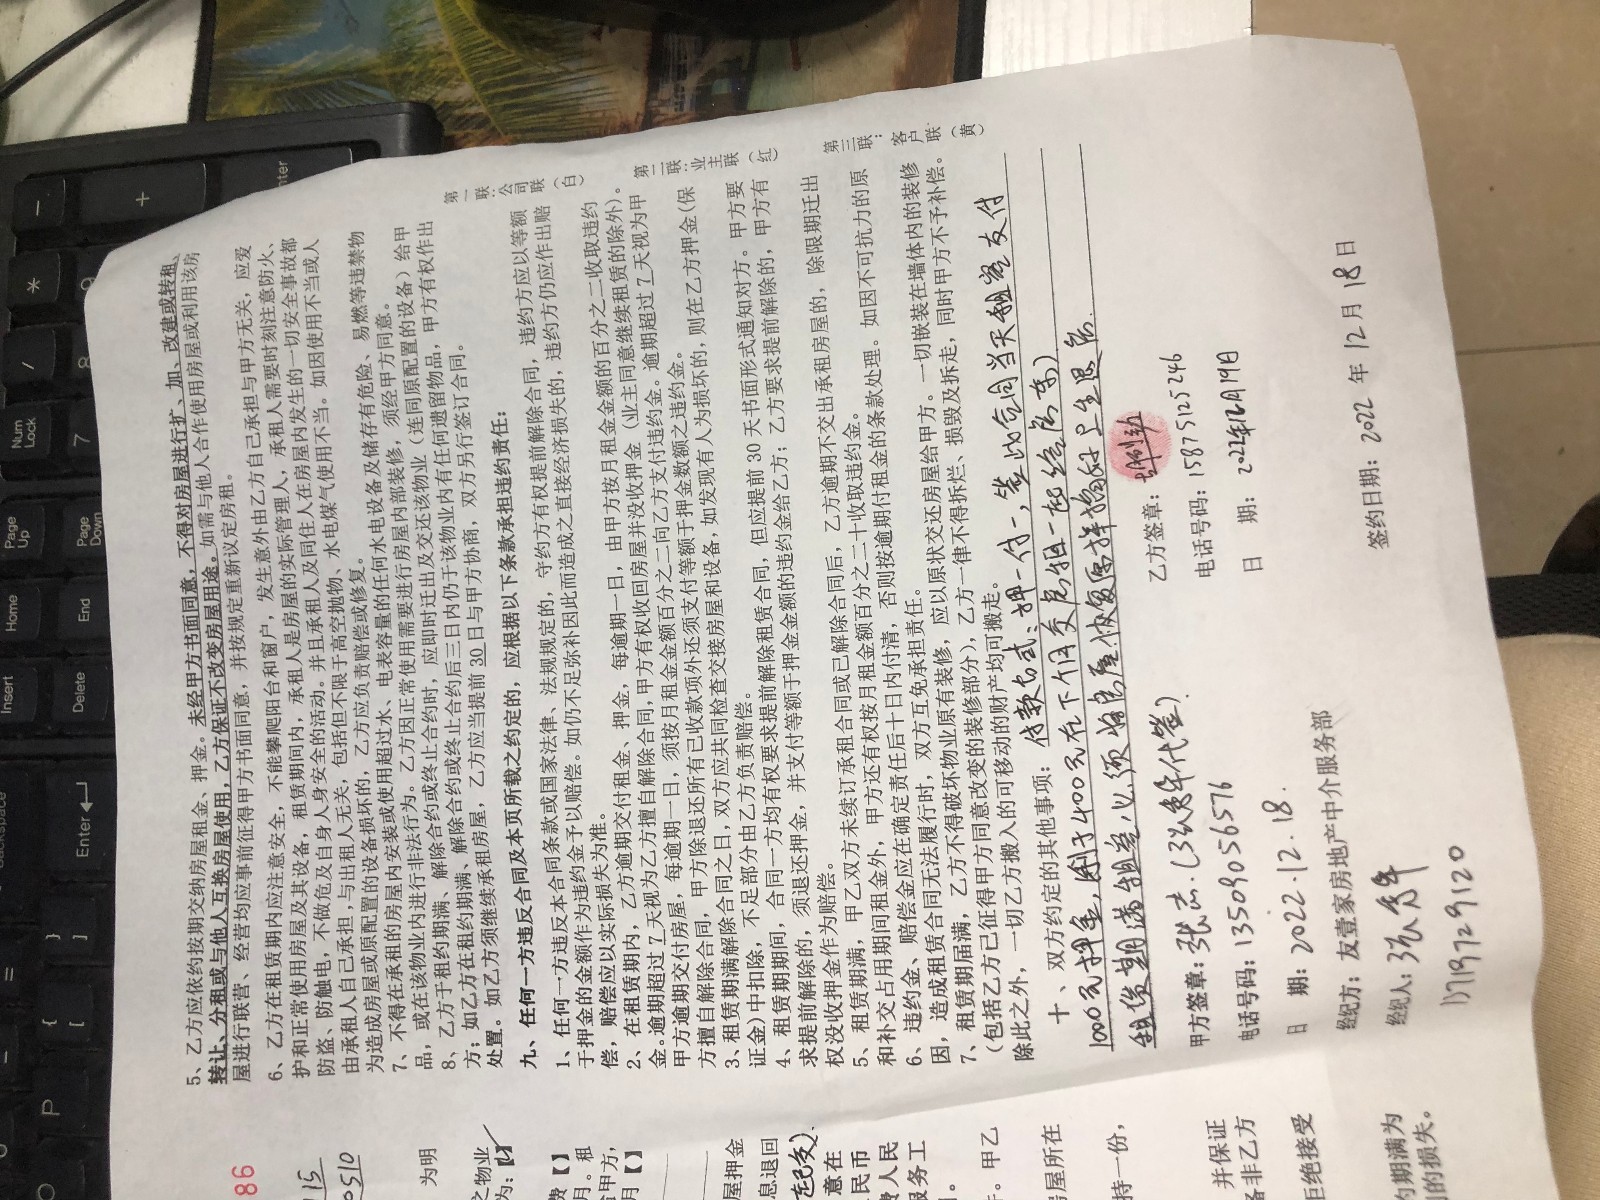 5、乙方应依约按期交纳房屋租金、押金。未经甲方书面同意，不得对房屋进行扩、加、改建或转租、
转让、分租或与他人互换房屋使用，乙方保证不改变房屋用途。如需与他人合作使用房屋或利用该房
屋进行联营、经营均应事前征得甲方书面同意，并按规定重新议定房租。
6、乙方在租赁期内应注意安全，不能攀爬阳台和窗户，发生意外由乙方自己承担与甲方无关，应爱
护和正常使用房屋及其设备，租赁期间内，承租人是房屋的实际管理人，承租人需要时刻注意防火、
防盗、防触电，不做危及自身人身安全的活动。并且承租人及同住人在房屋内发生的一切安全事故都
由承租人自己承担，与出租人无关，包括但不限于高空抛物、水电煤气使用不当。如因使用不当或人
为造成房屋或原配置的设备损坏的，乙方应负责赔偿或修复。
7、不得在承租的房屋内安装或使用超过水、电表容量的任何水电设备及储存有危险、易燃等违禁物
品，或在该物业内进行非法行为。乙方因正常使用需要进行房屋内部装修，须经甲方同意。
8、乙方于租约期满、解除合约或终止合约时，应即时迁出及交还该物业（连同原配置的设备）给甲
方；如乙方在租约期满、解除合约或终止合约后三日内仍于该物业内有任何遗留物品，甲方有权作出
处置。如乙方须继续承租房屋，乙方应当提前 30 日与甲方协商，双方另行签订合同。
九、任何一方违反合同及本页所载之约定的，应根据以下条款承担违约责任：
1、任何一方违反本合同条款或国家法律、法规规定的，守约方有权提前解除合同，违约方应以等额
于押金的金额作为违约金予以赔偿。如仍不足弥补因此而造成之直接经济损失的，违约方仍应作出赔
偿，赔偿应以实际损失为准。
2、在租赁期内，乙方逾期交付租金、押金，每逾期一日，由甲方按月租金金额的百分之二收取违约
金。逾期超过 7 天视为乙方擅自解除合同，甲方有权收回房屋并没收押金（业主同意继续租赁的除外）。
甲方逾期交付房屋，每逾期一日，须按月租金金额百分之二向乙方支付违约金。逾期超过 7 天视为甲
方擅自解除合同，甲方除退还所有已收款项外还须支付等额于押金数额之违约金。
3、租赁期满或解除合同之日，双方应共同检查交接房屋和设备，如发现有人为损坏的，则在乙方押金(保
证金)中扣除，不足部分由乙方负责赔偿。
4、租赁期期间，合同一方均有权要求提前解除租赁合同，但应提前 30 天书面形式通知对方。甲方要
求提前解除的，须退还押金，并支付等额于押金金额的违约金给乙方；乙方要求提前解除的，甲方有
权没收押金作为赔偿。
5、租赁期满，甲乙双方未续订承租合同或已解除合同后，乙方逾期不交出承租房屋的，除限期迁出
和补交占用期间租金外，甲方还有权按月租金额百分之二十收取违约金。
6、违约金、赔偿金应在确定责任后十日内付清，否则按逾期付租金的条款处理。如因不可抗力的原
因，造成租赁合同无法履行时，双方互免承担责任。
7、租赁期届满，乙方不得破坏物业原有装修，应以原状交还房屋给甲方。一切嵌装在墙体内的装修
（包括乙方已征得甲方同意改变的装修部分），乙方一律不得拆烂、损毁及拆走，同时甲方不予补偿。
除此之外，一切乙方搬入的可移动的财产均可搬走。
十、双方约定的其他事项：付款方式：押一付一，签此合同当天租客支付
1000元押金，剩于400元在下个月交房租一起给房东)
租赁期满租客必须将房屋恢复原样搞好卫生退房.
第一联：公司联（白）
第二联：业主联（红）
第三联：客户联（黄）
甲方签章：张志.(张秀年代签)
乙方签章：
电话号码：13509056576
电话号码：15875125246
日 期：2022.12.18.
日 期：2022年12月19日
经纪方：友壹家房地产中介服务部
签约日期：2022 年 12 月 18 日
经纪人：张秀年
17197299120
86
15
0510
为明
之物业
为：【
费【】
月。租
甲方，
月【】
屋押金
息退回
在纪交)
意在
民币
费人民
服务工
。甲乙
房屋所在
持一份，
并保证
备非乙方
拒绝接受
期满为
的损失。
Num Lock
Page Up
Page Down
Home
End
Insert
Delete
Enter
Backspace
7
8
9
P